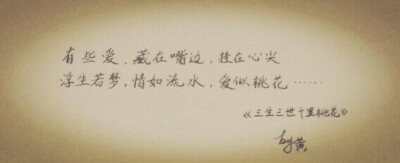 有些爱，藏在嘴边，挂在心尖
浮生若梦，情如流水，爱似桃花……
《三生三世十里桃花》